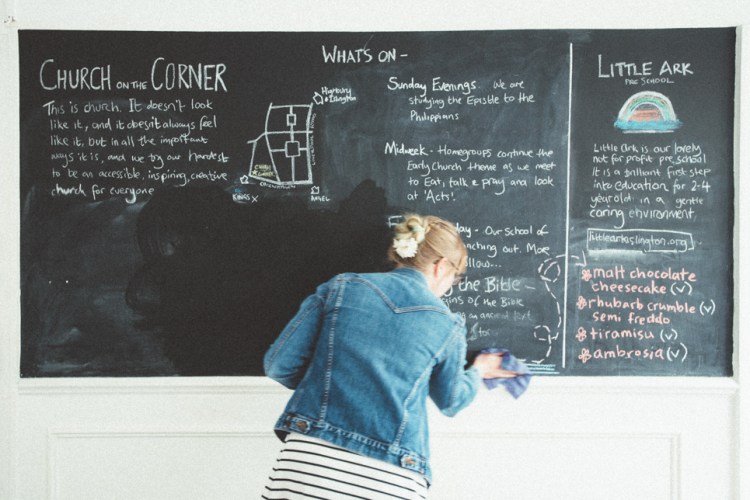 CHURCH ON THE CORNER
This is church. It doesn't look
like it, and it doesn't always feel
like it, but in all the important
ways it is, and we try our hardest
to be an accessible, inspiring, creative
church for everyone
Highbury
& Islington
KINGS X
ANGEL
WHAT'S ON -
Sunday Evenings. We are
studying the Epistle to the
Philippians
Midweek - Homegroups continue the
Early Church theme as we meet
to Eat, talk & pray and look
at 'Acts'.
day - Our School of
nching out. More
llow...
the Bible -
of the Bible
LITTLE ARK
PRE SCHOOL
Little Ark is our lovely
not for profit pre school
It is a brilliant first step
into education for 2-4
year old in a gentle
caring environment.
littlearkislington.org
malt chocolate
cheesecake (v)
rhubarb crumble (v)
semi freddo
tiramisu (v)
ambrosia (v)